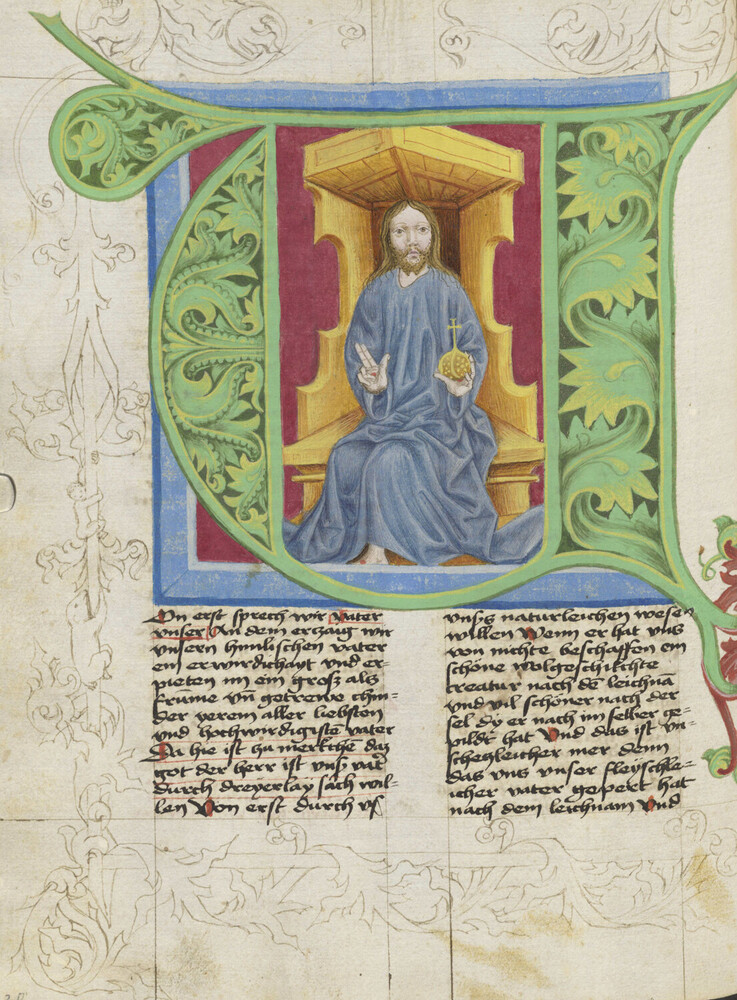 On erst sprech wir vater
vnser An dem erczaig wir
vnsern himlischen vater
ein erwirdichayt vnd er-
pieten im ein groß als
frume vn̄ getrewe chin-
der yerem aller liebsten
vnd hochwirdigistē vater
Da hie ist zu merkchē daz
got der herr ist vns vat̄
durch dreyerlay sach wil-
len Von erst durch vs
vnsers naturleichen wesen
willen Wenn er hat vns
von nichte beschaffen ein
schöne wolgeschikchte
creatur nach dē leichnā
vnd vil schöner nach der
sel dy er nach im selber ge-
pildt hat Vnd das ist vn-
schegleicher mer denn
das vns vnser fleyschle-
icher vater gepert hat
nach dem leichnam Vnd